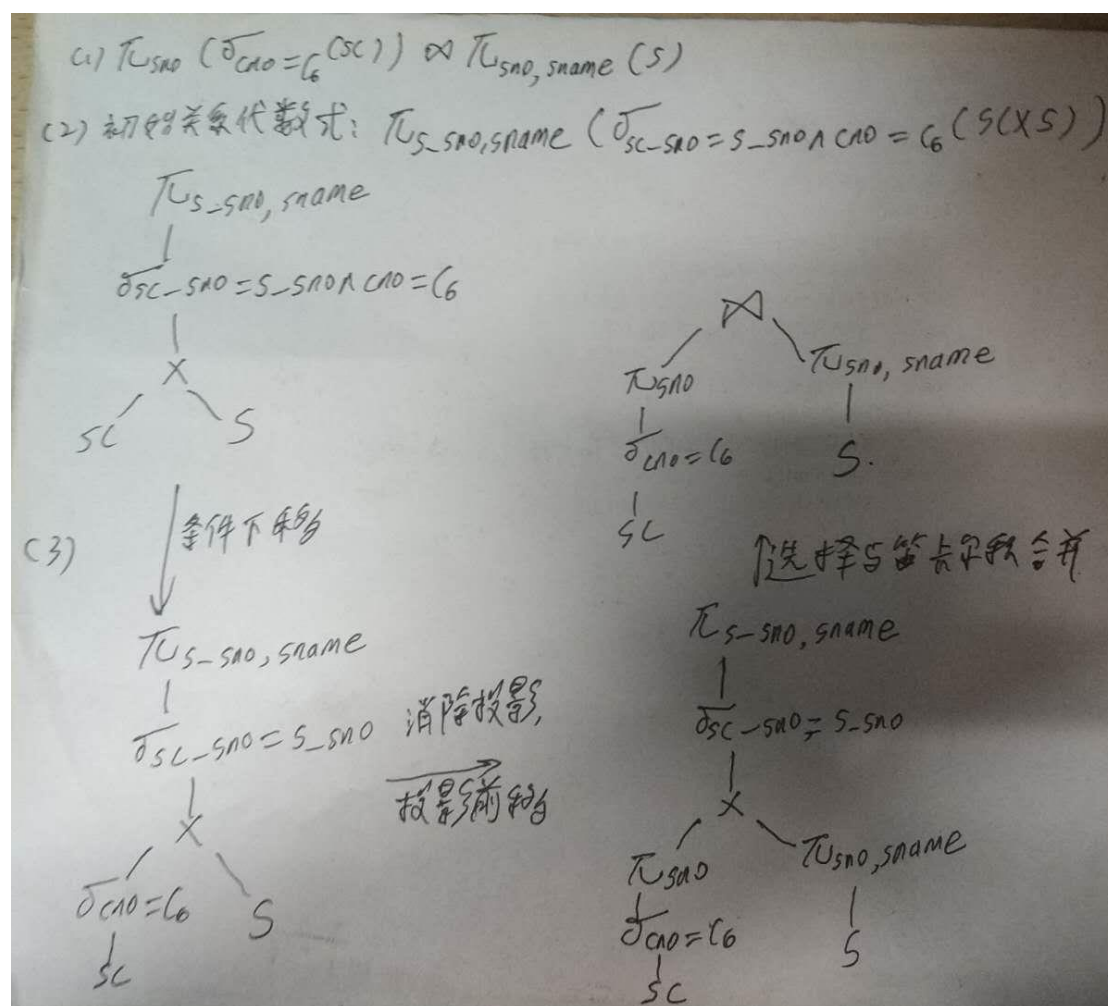 (1) π sno (σ cno=C6 (SC)) ⋈ π sno, sname (S)
(2) 初始关系代数式: π S_sno, sname (σ SC_sno=S_sno∧cno=C6 (SC×S))
π S_sno, sname
σ SC_sno=S_sno∧cno=C6
×
SC S
⋈
π sno π sno, sname
σ cno=C6 S.
SC
(3) 条件下移
↑选择与笛卡尔积合并
π S_sno, sname
σ SC_sno=S_sno
×
σ cno=C6 S
SC
消除投影,
投影前移
π S_sno, sname
σ SC_sno=S_sno
×
π sno π sno, sname
σ cno=C6 S
SC